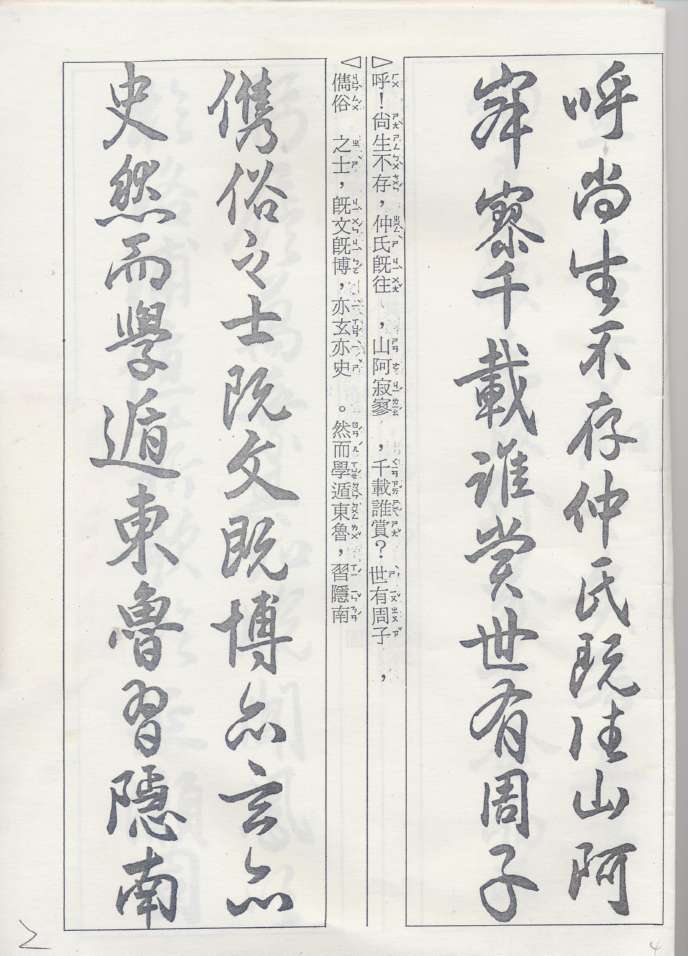 呼尚生不存仲氏既往山阿
寂寥千載誰赏世有周子
▷呼！尙生不存，仲氏旣往，山阿寂寥，千載誰賞？世有周子，
◁儁俗之士，旣文旣博，亦玄亦史。然而學遁東魯，習隱南
儁俗之士既文既博亦玄亦
史然而學遁東魯習隱南
2
4